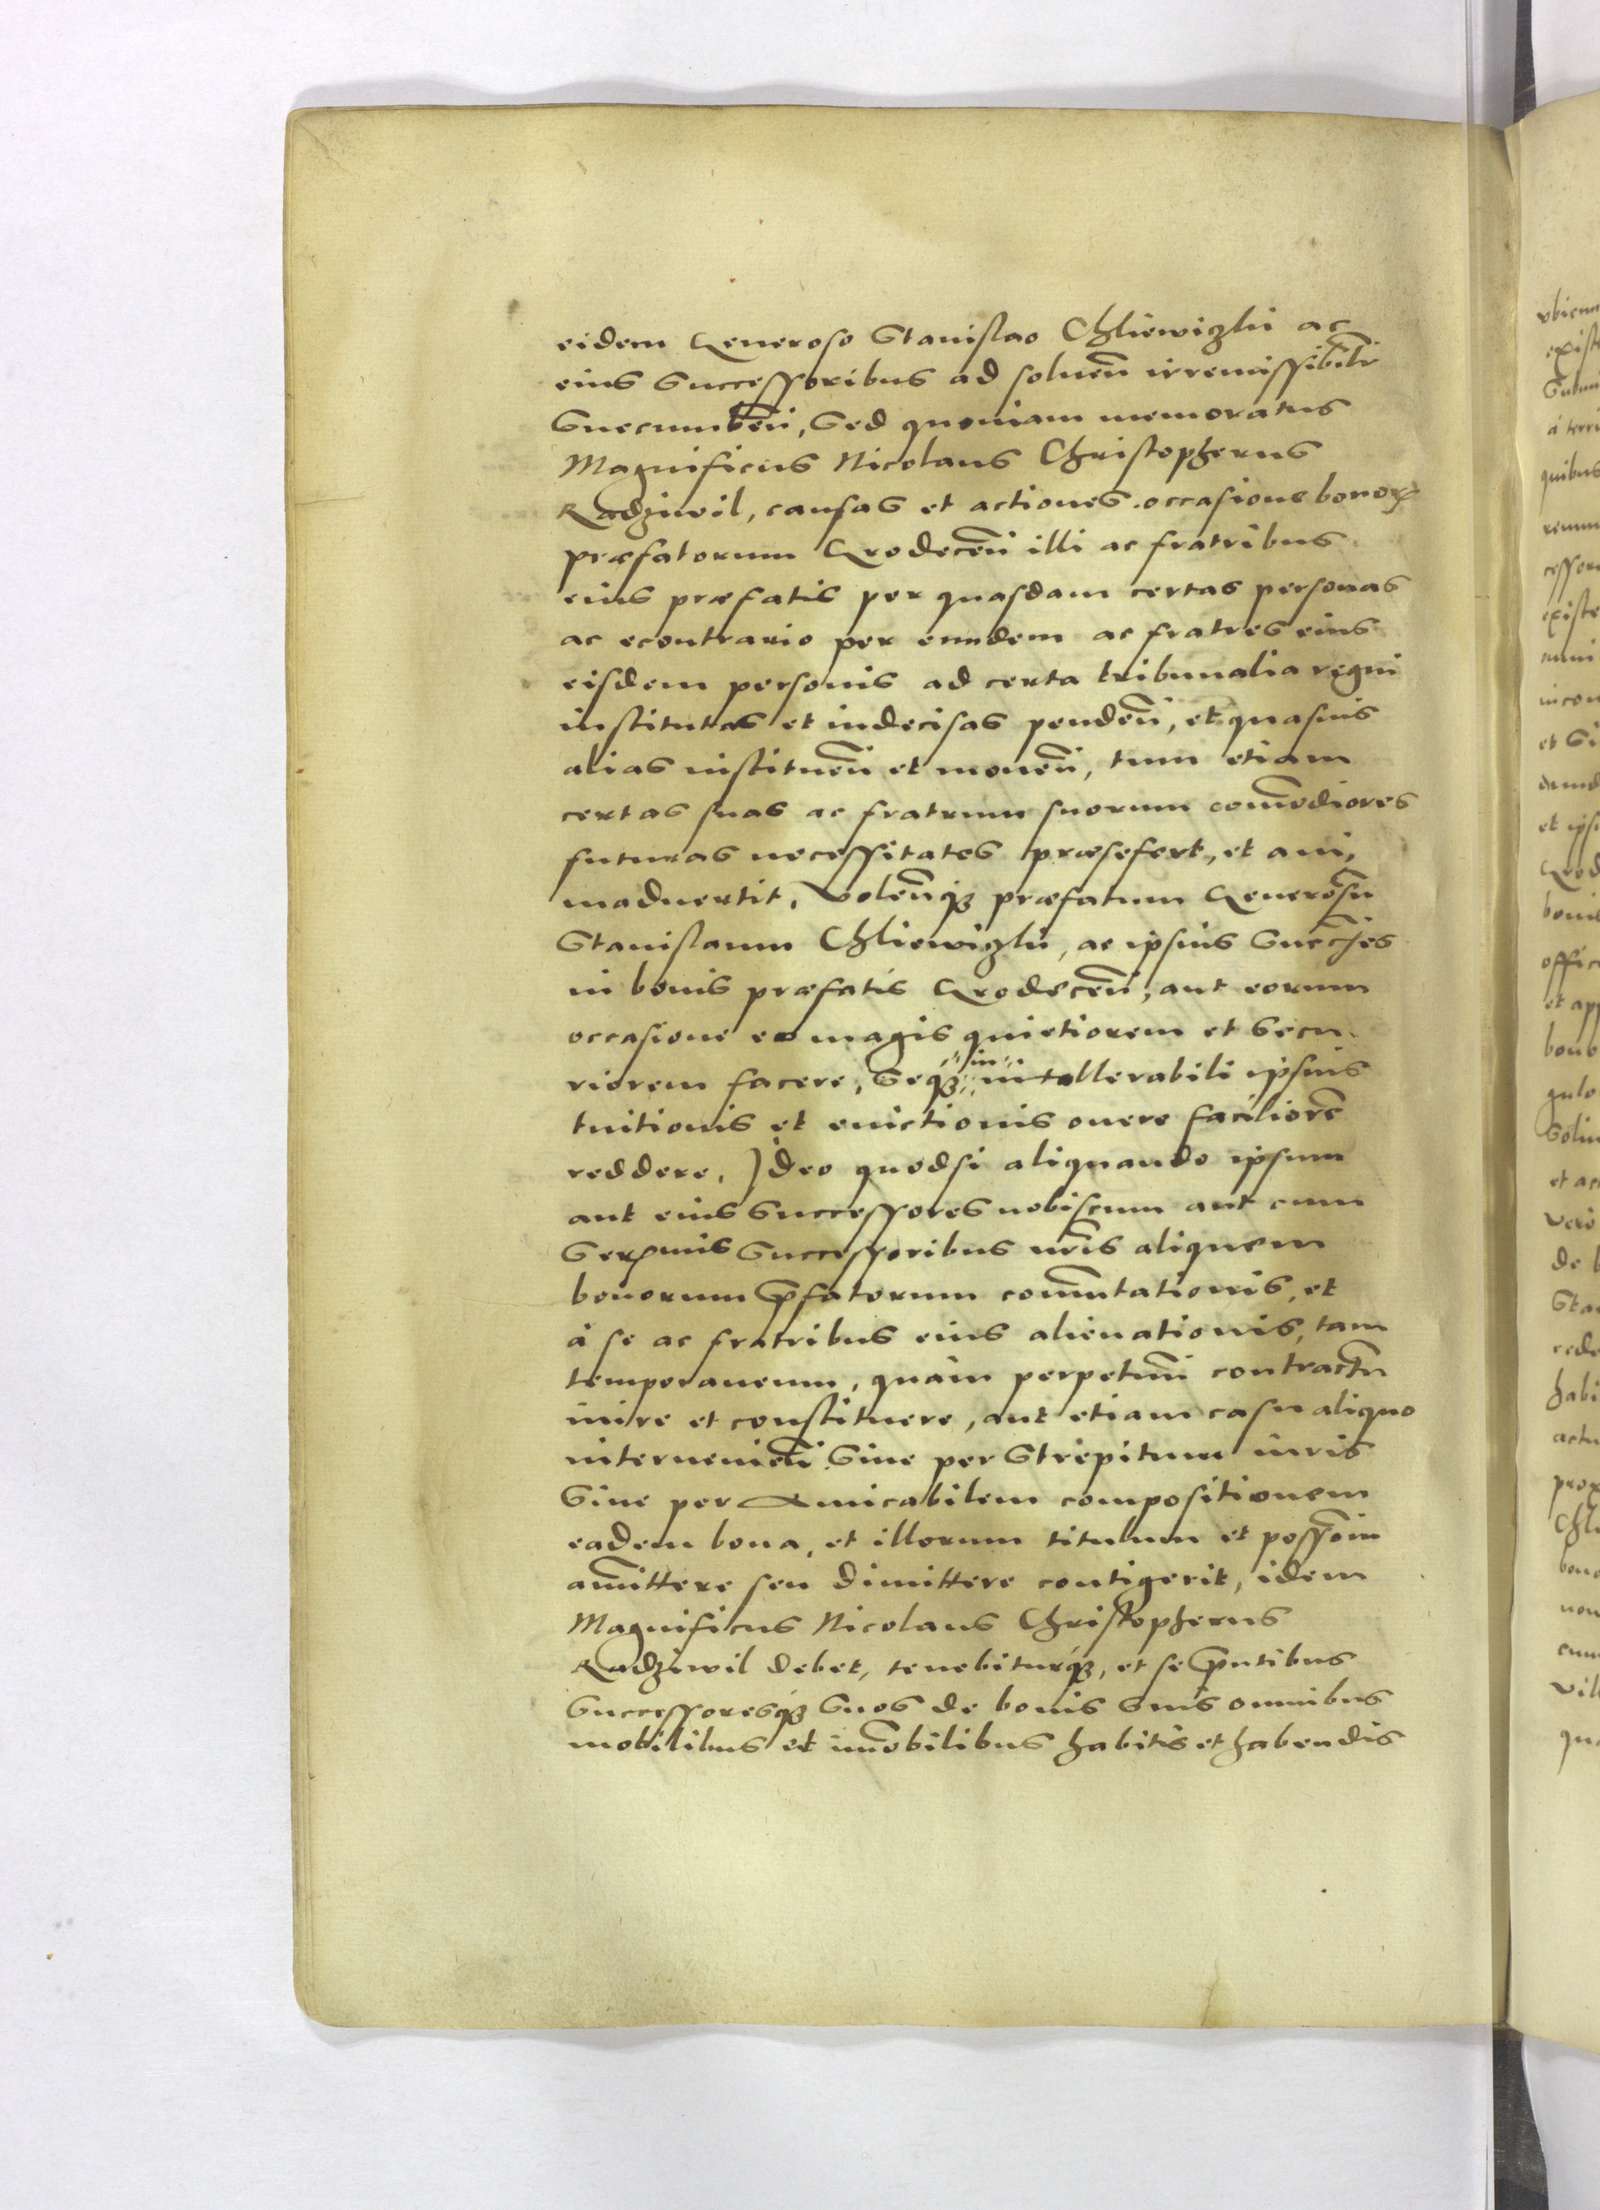 eidem Generoso Stanislao Chliewiczki ac
eius Successoribus ad soluen̄ irremissibilr̄
Succumben̄, Sed quoniam memoratus
Magnificus Nicolaus Christopherus
Radziwil, causas et actiones occasione bonoꝝ
præfatorum Grodecen̄ illi ac fratribus
eius præfatis per quasdam certas personas
ac econtrario per eundem ac fratres eius
eisdem personis ad certa tribunalia regni
institutas et indecisas penden̄, et quasuis
alias instituen̄ et mouen̄, tum etiam
certas suas ac fratrum suorum com̄odiores
futuras necessitates præsefert, et ani,
maduertit, Volen̄qꝫ præfatum Generosū
Stanislaum Chliewiczki, ac ipsius Succ̄es
in bonis præfatis Grodecen̄, aut eorum
occasione eo magis quietiorem et Secu
riorem facere, Seqꝫ in intollerabili ipsius
tuitionis et euictionis onere faciliorē
reddere. Ideo quodsi aliquando ipsum
aut eius Successores nobiscum aut cum
Serꝫmis Successoribus nr̄is aliquem
bonorum p̄fatorum com̄utationis, et
à se ac fratribus eius alienationis, tam
temporaneum, quàm perpetuū contractū
inire et constituere, aut etiam casu aliquo
interuenien̄ Siue per Strepitum iuris
Siue per Amicabilem compositionem
eadem bona, et illorum titulum et possr̄oin
am̄ittere seu dimittere contigerit, idem
Magnificus Nicolaus Christopherus
Radziwil debet, tenebiturqꝫ, et se p̄ntibus
Successoresqꝫ Suos de bonis Suis omnibus
mobilibus et im̄obilibus habitis et habendis